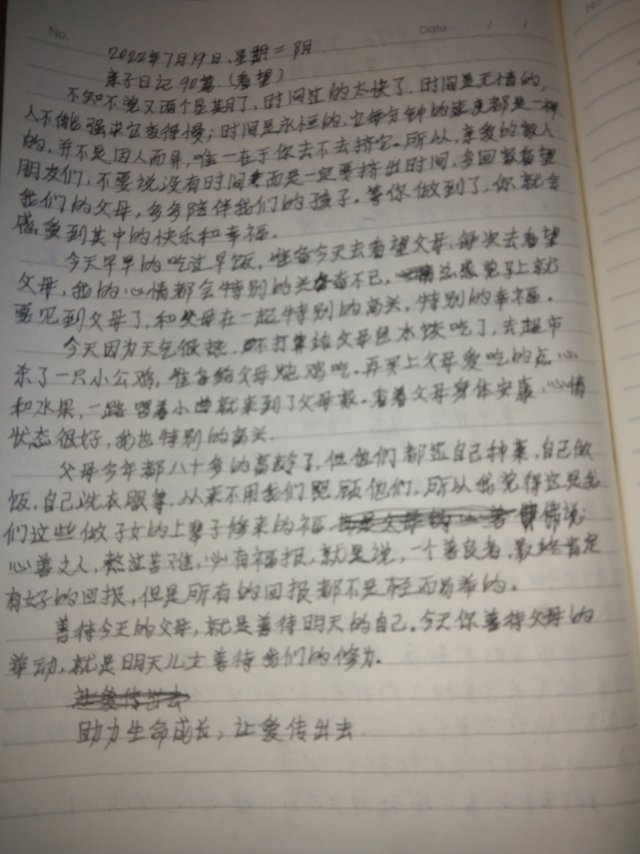 No.
Date / /
2022年7月19日.星期二 阴
亲子日记90篇(看望)
不知不觉又两个星期了.时间过的太快了.时间是无情的,
人不能强求它变得慢;时间是永恒的,它每分钟的速度都是一样
的.并不是因人而异,唯一在于你去不去挤它.所以,亲爱的家人
朋友们,不要说没有时间而是一定要挤出时间,多回家看望
我们的父母,多多陪伴我们的孩子.等你做到了.你就会
感受到其中的快乐和幸福.
今天早早的吃过早饭,准备今天去看望父母,每次去看望
父母,我的心情都会特别的兴奋不已,总感觉马上就
要见到父母了,和父母在一起特别的高兴,特别的幸福.
今天因为天气很热.不打算给父母包水饺吃了,去超市
杀了一只小公鸡,准备给父母炖鸡吃.再买上父母爱吃的点心
和水果,一路哼着小曲就来到了父母家.看着父母身体安康,心情
状态很好,我也特别的高兴.
父母今年都八十多的高龄了,但他们都还自己种菜,自己做
饭,自己洗衣服等,从来不用我们照顾他们,所以我觉得这是我
们这些做子女的上辈子修来的福 佛说:
心善之人,熬过苦难,必有福报,就是说,一个善良者,最终肯定
有好的回报,但是所有的回报都不是轻而易举的.
善待今天的父母,就是善待明天的自己.今天你善待父母的
举动,就是明天儿女善待我们的修为.
让爱传出去
助力生命成长,让爱传出去.